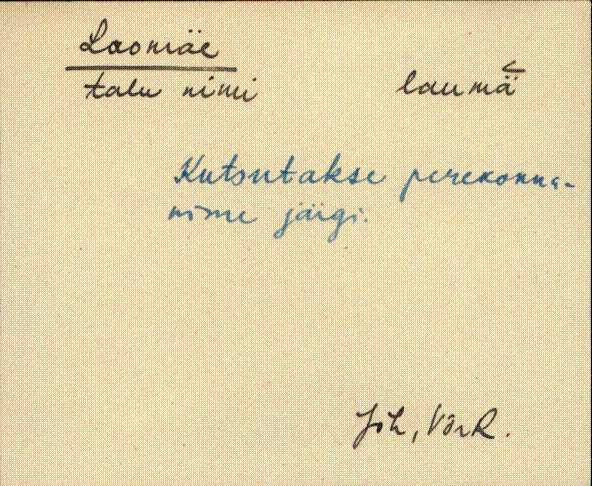 Laomäe
talu nimi laumä
Kutsutakse perekonna-
nime järgi.
Jõh, VõrR.